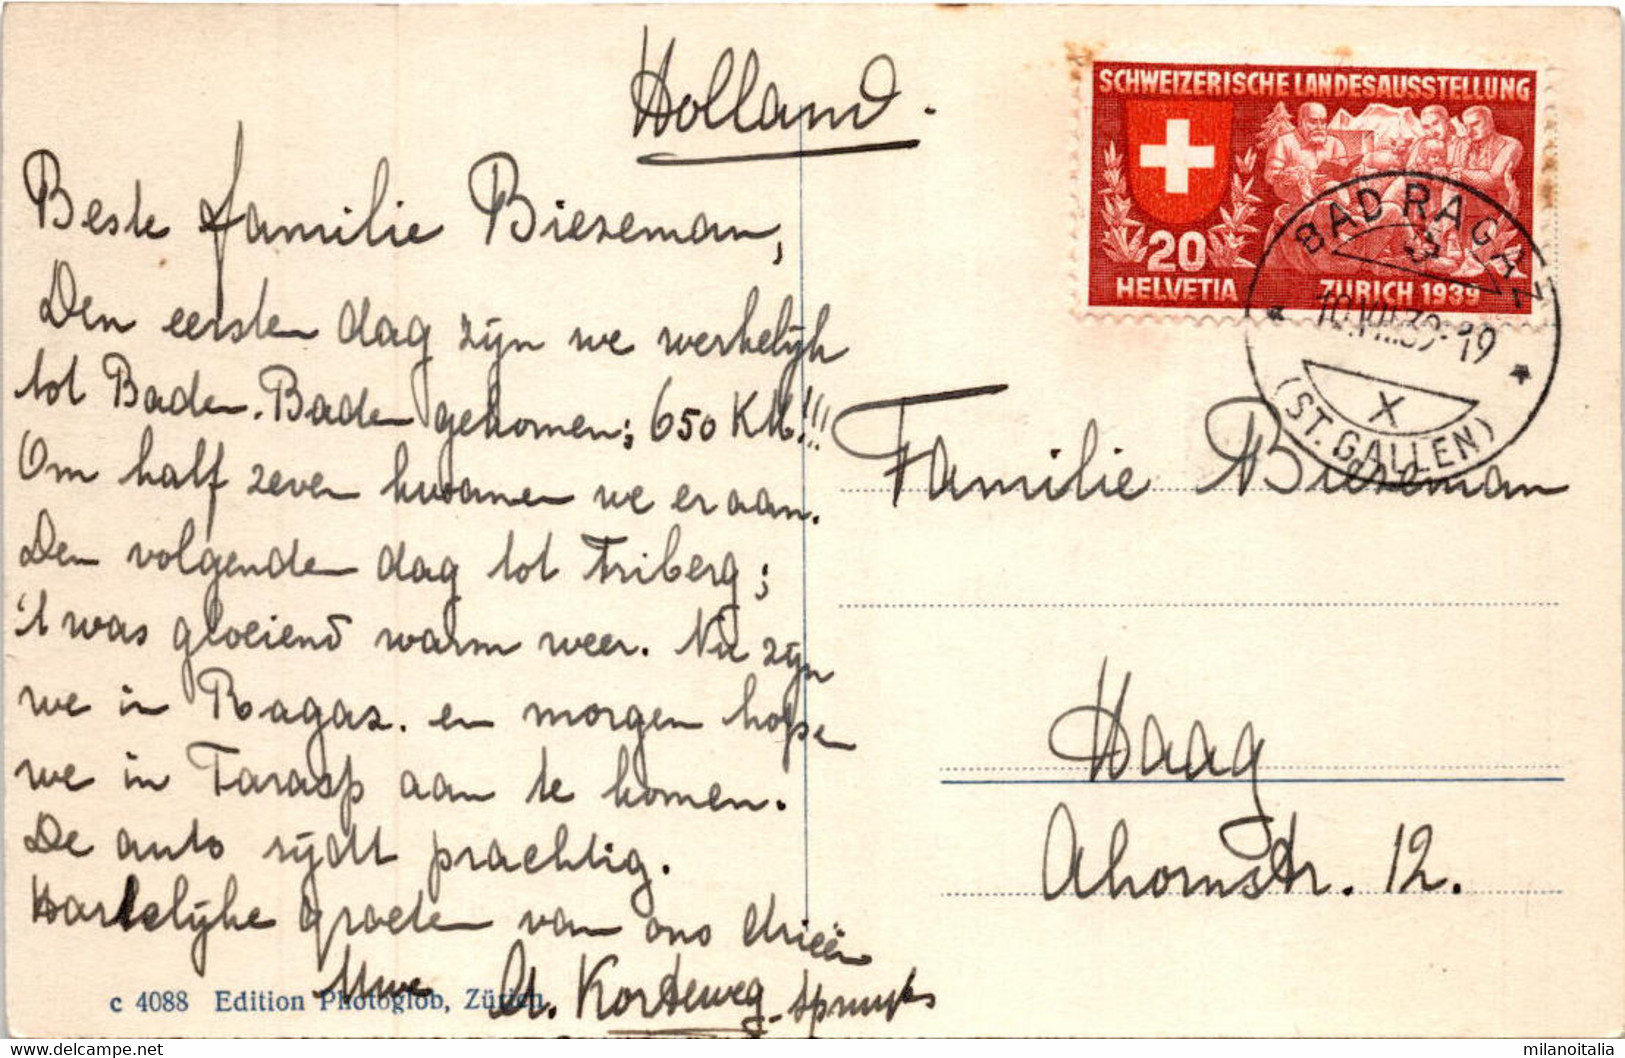 Holland.
Beste familie Biezeman,
Den eersten dag zijn we werkelijk
tot Baden-Baden gekomen; 650 KM!!!
Om half zeven kwamen we er aan.
Den volgenden dag tot Triberg;
't was gloeiend warm weer. Nu zijn
we in Ragaz. en morgen hopen
we in Tarasp aan te komen.
De auto rijdt prachtig.
Hartelijke groeten van ons drieën
Mwe A. Korteweg-Spruyts
c 4088 Edition Photoglob, Zürich
SCHWEIZERISCHE LANDESAUSSTELLUNG
20
HELVETIA ZÜRICH 1939
BAD RAGAZ
10.VIII.39-19
X
(ST. GALLEN)
Familie Biezeman
Haag
Ahornstr. 12.
milanoitalia